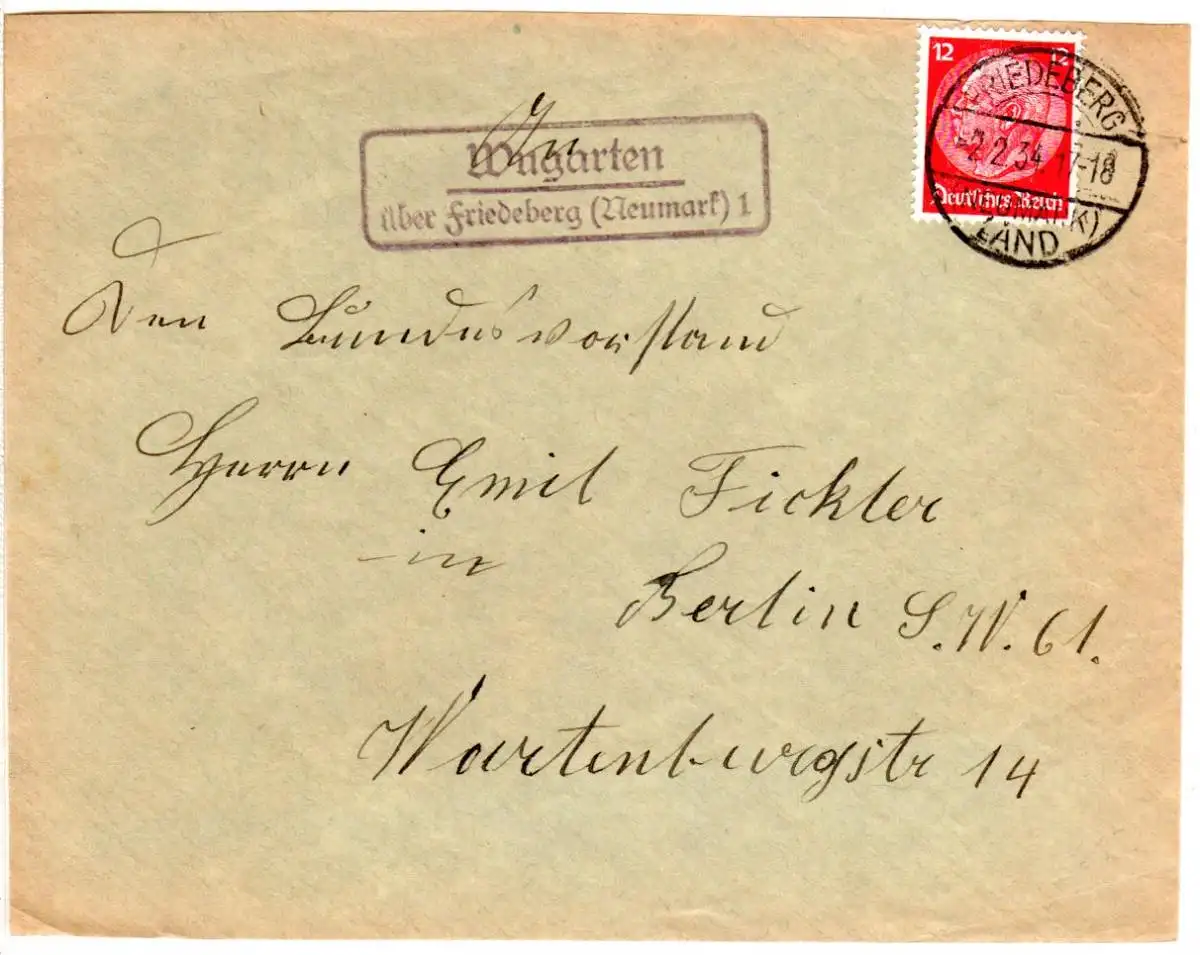 An
Wugarten
über Friedeberg (Neumark) 1
12 12
Deutsches Reich
FRIEDEBERG
-2.2.34. 17-18
(NEUMARK)
LAND
Den Bundesvorstand
Herrn Emil Fickler
in
Berlin S.W. 61.
Wartenburgstr 14